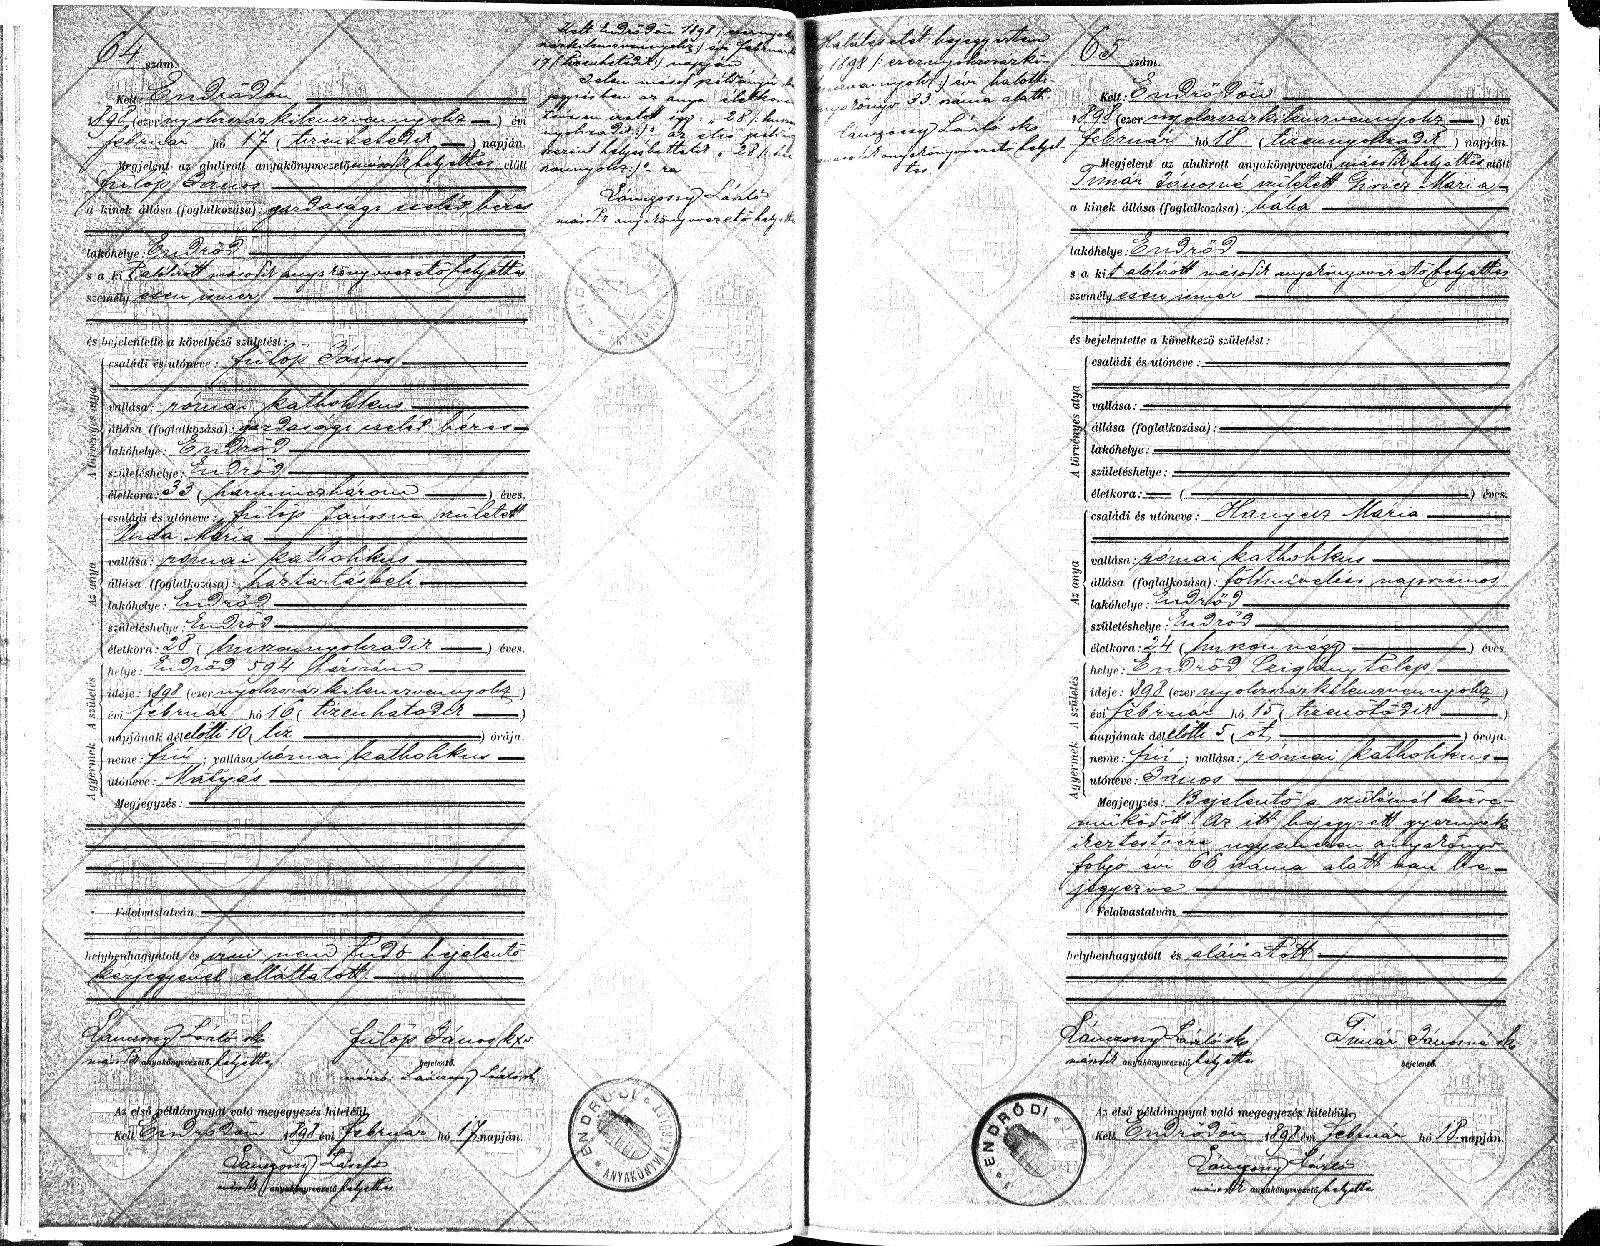 64 szám.
Kelt Endrődön
1898 (ezernyolcszázkilencvennyolcz) évi
február hó 17 (tizenhetedik) napján.
Megjelent az alulirott anyakönyvvezető második helyettes előtt
Fülöp János
a kinek állása (foglalkozása): gazdasági cseléd béres
lakóhelye: Endrőd
s a kit alulirott második anyakönyvvezető helyettes
személyesen ismer
és bejelentette a következő születést:
A törvényes atya
családi és utóneve: Fülöp János
vallása: római katholikus
állása (foglalkozása): gazdasági cseléd béres
lakóhelye: Endrőd
születéshelye: Endrőd
életkora: 33 (harminczhárom) éves.
Az anya
családi és utóneve: Fülöp Jánosné született
Maria
vallása: római katholikus
állása (foglalkozása): háztartásbeli
lakóhelye: Endrőd
születéshelye: Endrőd
életkora: 28 (huszonnyolcadik) éves.
A születés
helye: Endrőd 594 házszám
ideje: 1898 (ezernyolcszázkilencvennyolcz)
évi február hó 16 (tizenhatodik)
napjának délelőtti 10 (tiz) órája.
A gyermek
neme: fiú; vallása: római katholikus
utóneve: Mátyás
Megjegyzés:
Felolvastatván,
helybenhagyatott és irni nem tudó bejelentő
kézjegyével elláttatott.
László sk Fülöp János kxv
második anyakönyvvezető helyettes bejelentő.
László sk
Az első példánynyal való megegyezés hiteléül.
Kelt Endrődön 1898 évi február hó 17 napján.
László
második anyakönyvvezető helyettes
Kelt Endrődön 1898 (ezernyolc
százkilencvennyolcz) évi február
19 (tizenkilenczedik) napján
Jelen másod példányú be
jegyzésben az anya életkora
28 (huszon
nyolcadik) az első példány
szerint helyesbittetett 28 (husz
onnyolcz) ra
László
második anyakönyvvezető helyettes
ENDRŐDI ANYAKÖNYVI KERÜLET
Halálesetét bejegyeztem
1898 (ezernyolcszázki-
lencvennyolcz) évi halotti
anyakönyv 33 száma alatt
László sk
második anyakönyvvezető helyet-
tes
65 szám.
Kelt: Endrődön
1898 (ezernyolcszázkilencvennyolcz) évi
február hó 18 (tizennyolcadik) napján.
Megjelent az alulirott anyakönyvvezető második helyettes előtt
Timár Jánosné született Maria
a kinek állása (foglalkozása): bába
lakóhelye: Endrőd
s a kit alulirott második anyakönyvvezető helyettes
személyesen ismer
és bejelentette a következő születést:
A törvényes atya
családi és utóneve:
vallása:
állása (foglalkozása):
lakóhelye:
születéshelye:
életkora: ( ) éves.
Az anya
családi és utóneve: Hanyecz Maria
vallása: római katholikus
állása (foglalkozása): földmivelési napszámos
lakóhelye: Endrőd
születéshelye: Endrőd
életkora: 24 (huszonnégy) éves
A születés
helye: Endrőd Czigánytelep
ideje: 1898 (ezernyolcszázkilencvennyolcz)
évi február hó 15 (tizenötödik)
napjának délelőtti 5 (öt) órája.
A gyermek
neme: fiú; vallása: római katholikus
utóneve: János
Megjegyzés: Bejelentő a szülésnél közre-
működött. Az itt bejegyzett gyermek
ikertestvére ugyanezen anyakönyv
folyó évi 66 száma alatt van be-
jegyezve
Felolvastatván
helybenhagyatott és aláiratott
László sk Timár Jánosné sk
második anyakönyvvezető helyettes bejelentő.
Az első példánynyal való megegyezés hiteléül.
Kelt Endrődön 1898 évi február hó 18 napján.
László
második anyakönyvvezető helyettes
ENDRŐDI